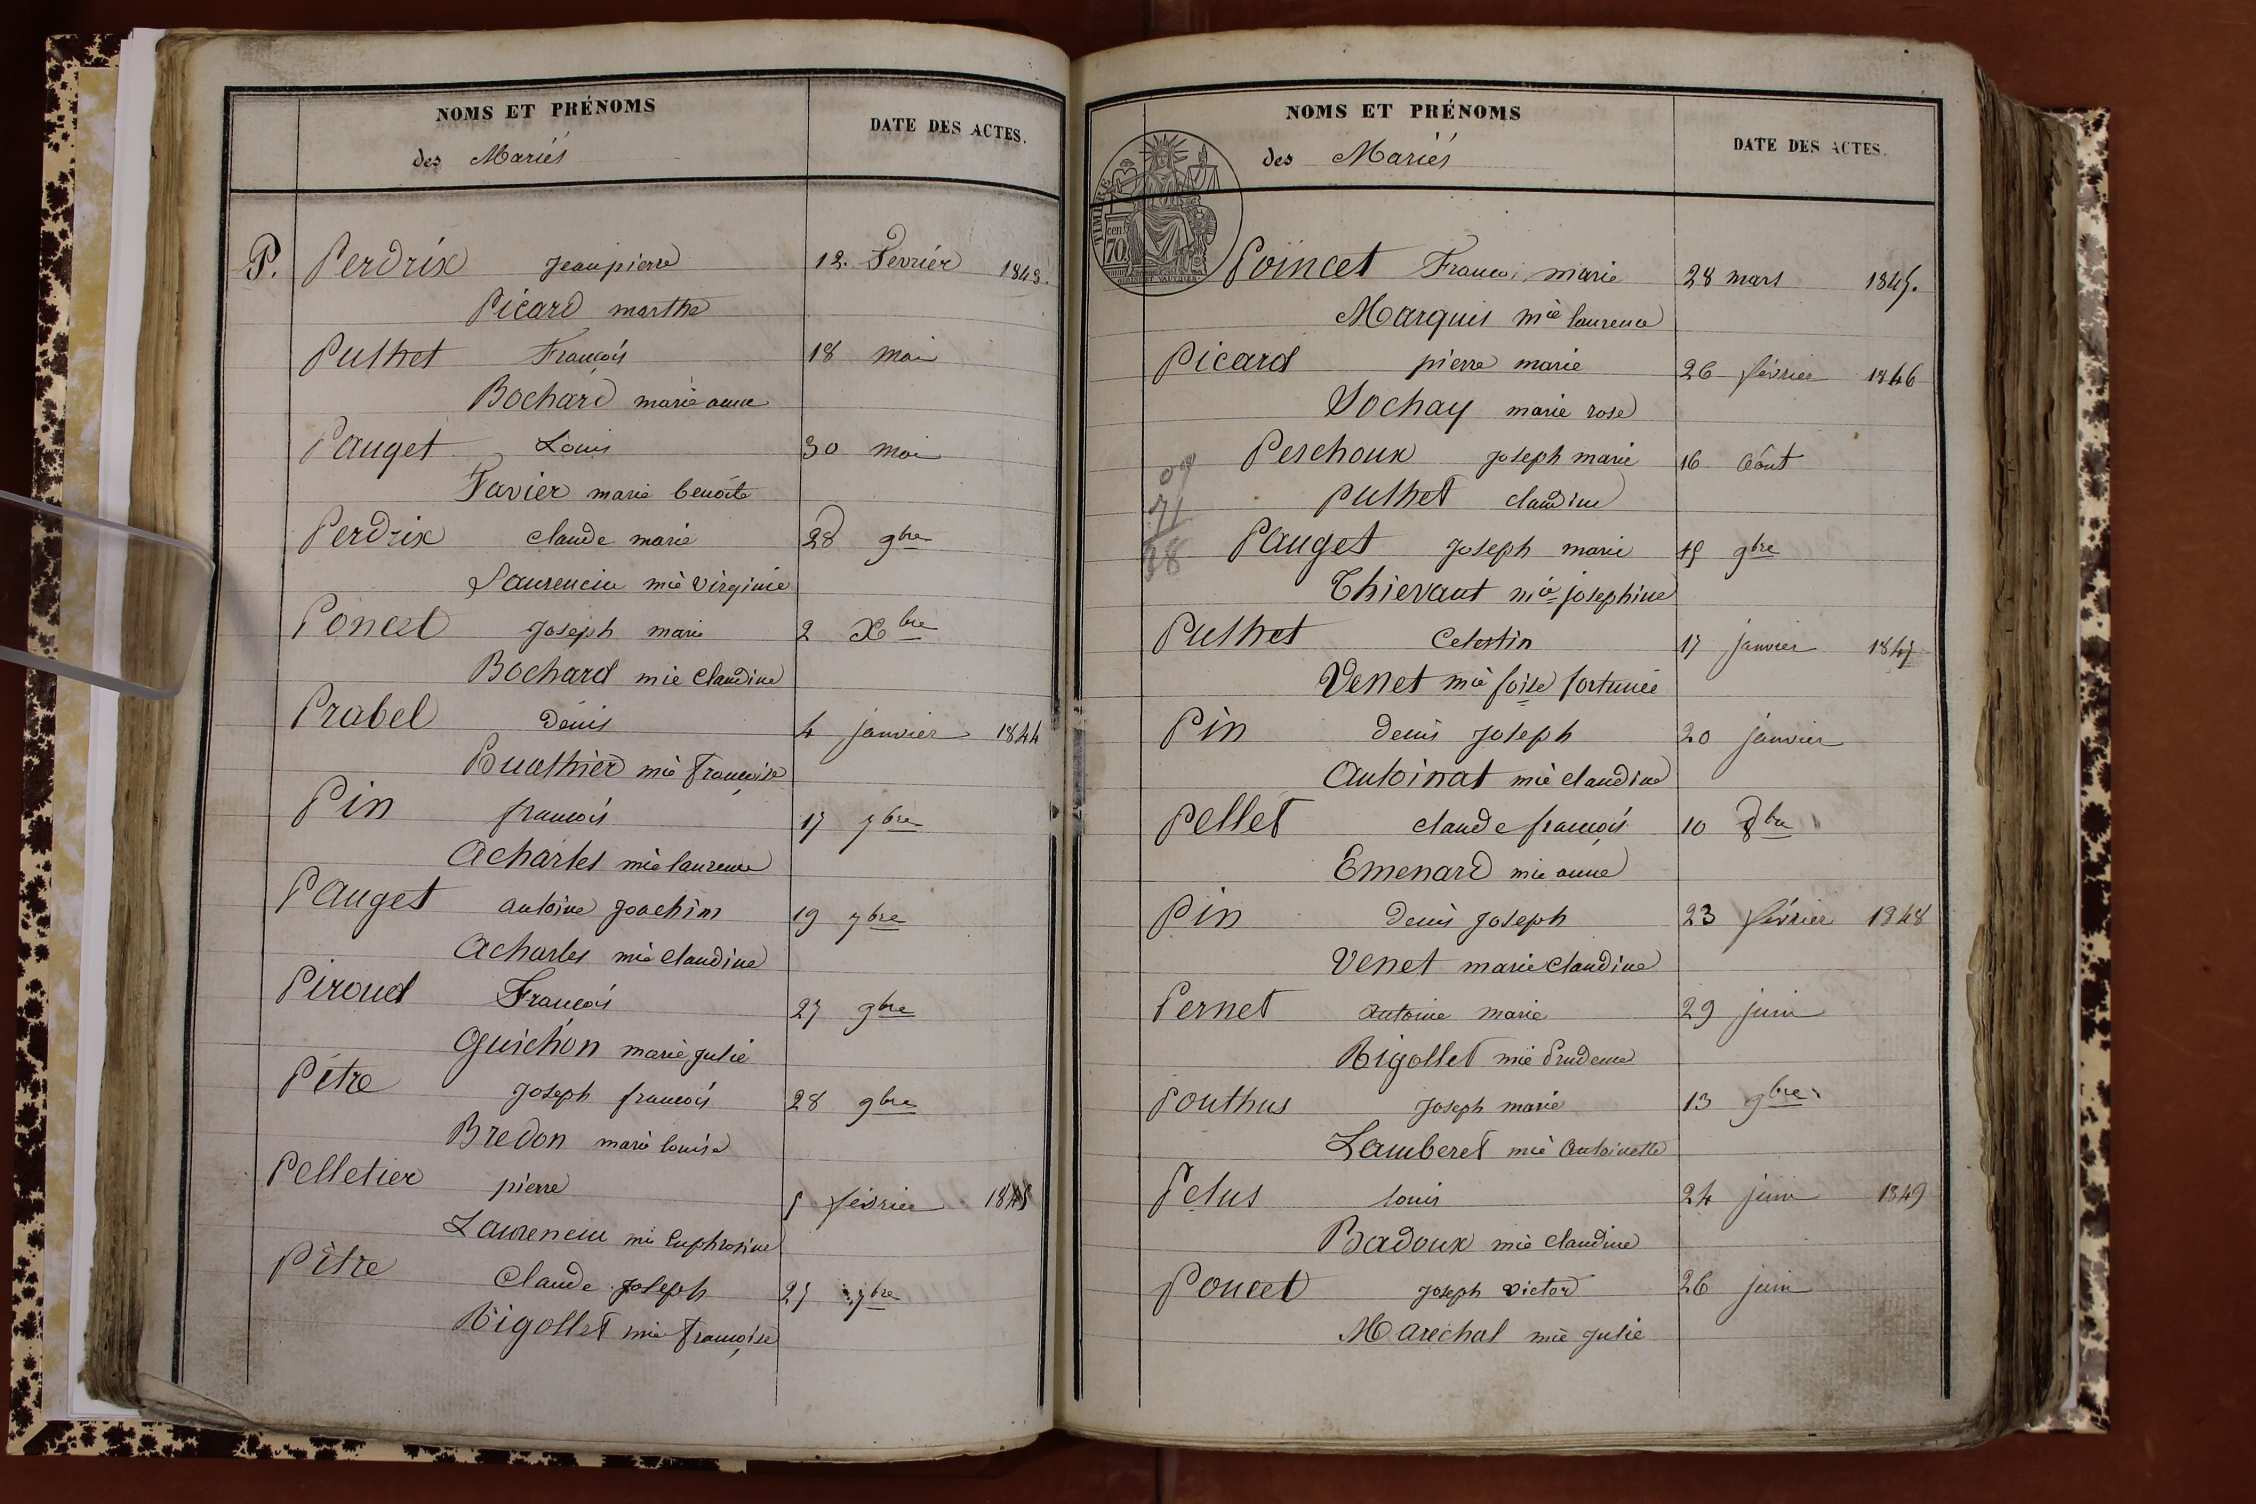 NOMS ET PRÉNOMS
DATE DES ACTES.
des Mariés
P. Perdrix Jean pierre 12. Fevrier 1843.
Picard marthe
Puthet François 18 mai
Bochard marie anne
Pauget Louis 30 mai
Favier marie benoite
Perdrix claude marie 28 9bre
Laurencin mie virginie
Poncet Joseph marie 2 Xbre
Bochard mie Claudine
Prabel Denis 4 janvier 1844
Buathier mie Françoise
Pin françois 17 7bre
Acharles mie laurence
Pauget antoine Joachim 19 7bre
Acharles mie Claudine
Piroud François 27 9bre
Guichon marie Julie
Pétre Joseph françois 28 9bre
Bredon marie louise
Pelletier pierre 5 février 1845
Laurencin mie Euphrosine
Pêtre Claude Joseph 27 7bre
Rigollet mie Françoise
NOMS ET PRÉNOMS
DATE DES ACTES.
des Mariés
TIMBRE
cent
70
Poincet François marie 28 mars 1845.
Marquis mie laurence
Picard pierre marie 26 février 1846
Sochay marie rose
Perchoux Joseph marie 16 Août
puthet claudine
71
Pauget Joseph marie 19 9bre
Thievant mie josephine
Puthet Celestin 17 janvier 1847
Venet mie foise fortunée
Pin denis Joseph 20 janvier
Antoinat mie claudine
Pellet claude françois 10 8bre
Emenard mie anne
Pin denis Joseph 23 février 1848
Venet marie Claudine
Pernet antoine marie 29 juin
Rigollet mie Prudence
Pouthus Joseph marie 13 9bre
Lamberet mie Antoinette
Petus louis 24 juin 1849
Badoux mie Claudine
Poncet Joseph victor 26 juin
Marechal mie Julie